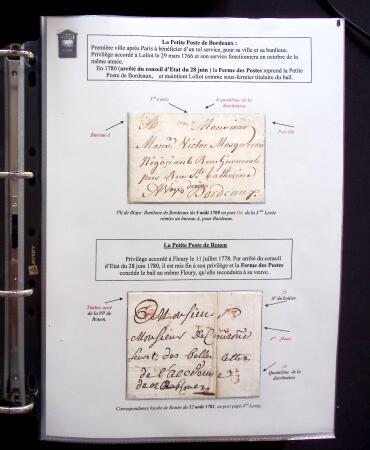 La Petite Poste de Bordeaux :
Première ville après Paris à bénéficier d'un tel service, pour sa ville et sa banlieue.
Privilège accordé à Loliot le 29 mars 1766 et son service fonctionnera en octobre de la
même année.
En 1780 (arrêté du conseil d'Etat du 28 juin ) la Ferme des Postes reprend la Petite
Poste de Bordeaux, et maintient Loliot comme sous-fermier titulaire du bail.
Levée
quantième de la
distribution
Bureau
Port
A Monsieur
Monsr Victor
Négociant Rue
près Rue Ste Catherine
Bordeaux
Pli de Blaye Banlieue de Bordeaux du 5 août 1769 en port de la Levée
remise au bureau A, pour Bordeaux.
La Petite Poste de Rouen
Privilège accordé à Fleury le 11 juillet 1778. Par arrêté du conseil
d'Etat du 28 juin 1780, il est mis fin à son privilège et la Ferme des Postes
concède le bail au même Fleury, qu'elle reconduira à sa veuve.
Timbre
de la PP
de Rouen.
25
N° du boîtier
Levée
Quantième de la
distribution
A Monsieur
Monsieur de
des belles lettres
de
Correspondance locale de Rouen du 12 août 1781, en port payé, Levée.